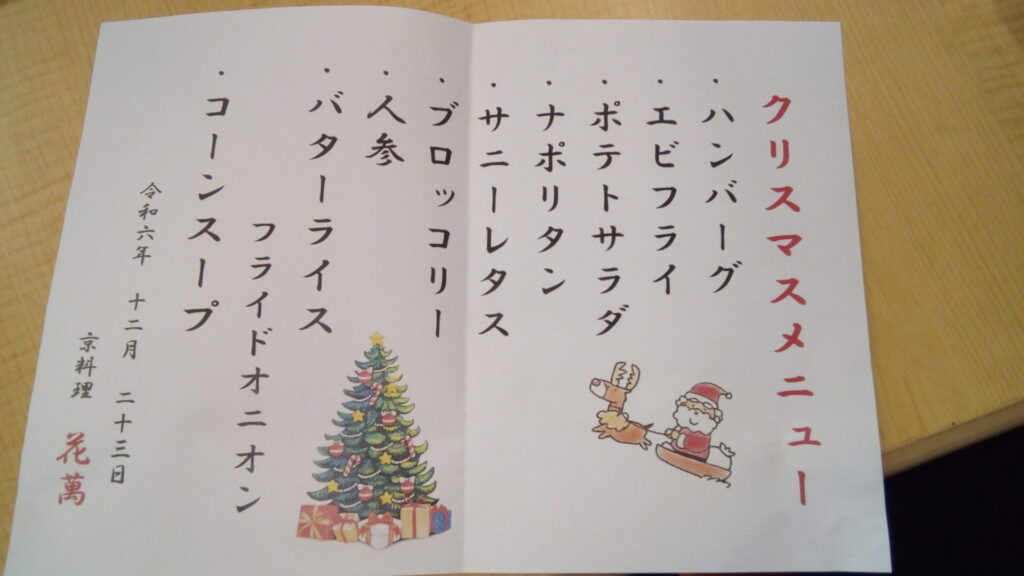 クリスマスメニュー
・ハンバーグ
・エビフライ
・ポテトサラダ
・ナポリタン
・サニーレタス
・ブロッコリー
・人参
・バターライス
フライドオニオン
・コーンスープ
令和六年 十二月 二十三日
京料理 花萬